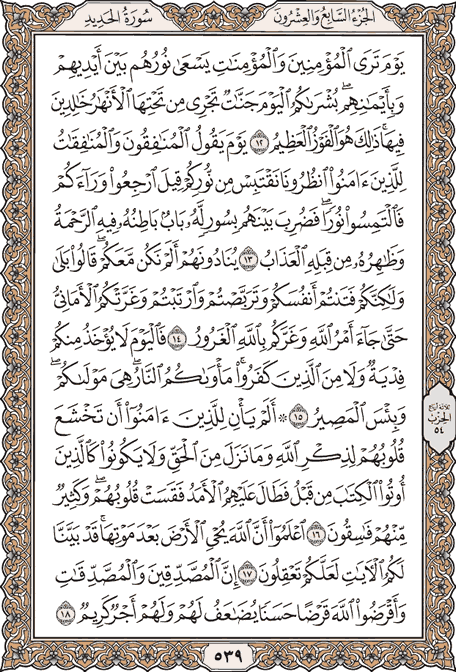 الجزء السابع والعشرون
سورة الحديد
يَوْمَ تَرَى ٱلْمُؤْمِنِينَ وَٱلْمُؤْمِنَٰتِ يَسْعَىٰ نُورُهُم بَيْنَ أَيْدِيهِمْ
وَبِأَيْمَٰنِهِمۖ بُشْرَىٰكُمُ ٱلْيَوْمَ جَنَّٰتٌ تَجْرِى مِن تَحْتِهَا ٱلْأَنْهَٰرُ خَٰلِدِينَ
فِيهَاۚ ذَٰلِكَ هُوَ ٱلْفَوْزُ ٱلْعَظِيمُ ١٢ يَوْمَ يَقُولُ ٱلْمُنَٰفِقُونَ وَٱلْمُنَٰفِقَٰتُ
لِلَّذِينَ ءَامَنُوا۟ ٱنظُرُونَا نَقْتَبِسْ مِن نُّورِكُمْ قِيلَ ٱرْجِعُوا۟ وَرَآءَكُمْ
فَٱلْتَمِسُوا۟ نُورًاۖ فَضُرِبَ بَيْنَهُم بِسُورٍ لَّهُۥ بَابٌۢ بَاطِنُهُۥ فِيهِ ٱلرَّحْمَةُ
وَظَٰهِرُهُۥ مِن قِبَلِهِ ٱلْعَذَابُ ١٣ يُنَادُونَهُمْ أَلَمْ نَكُن مَّعَكُمْۖ قَالُوا۟ بَلَىٰ
وَلَٰكِنَّكُمْ فَتَنتُمْ أَنفُسَكُمْ وَتَرَبَّصْتُمْ وَٱرْتَبْتُمْ وَغَرَّتْكُمُ ٱلْأَمَانِىُّ
حَتَّىٰ جَآءَ أَمْرُ ٱللَّهِ وَغَرَّكُم بِٱللَّهِ ٱلْغَرُورُ ١٤ فَٱلْيَوْمَ لَا يُؤْخَذُ مِنكُمْ
فِدْيَةٌ وَلَا مِنَ ٱلَّذِينَ كَفَرُوا۟ۚ مَأْوَىٰكُمُ ٱلنَّارُۖ هِىَ مَوْلَىٰكُمْۖ
وَبِئْسَ ٱلْمَصِيرُ ١٥ ۞ أَلَمْ يَأْنِ لِلَّذِينَ ءَامَنُوٓا۟ أَن تَخْشَعَ
قُلُوبُهُمْ لِذِكْرِ ٱللَّهِ وَمَا نَزَلَ مِنَ ٱلْحَقِّ وَلَا يَكُونُوا۟ كَٱلَّذِينَ
أُوتُوا۟ ٱلْكِتَٰبَ مِن قَبْلُ فَطَالَ عَلَيْهِمُ ٱلْأَمَدُ فَقَسَتْ قُلُوبُهُمْۖ وَكَثِيرٌ
مِّنْهُمْ فَٰسِقُونَ ١٦ ٱعْلَمُوٓا۟ أَنَّ ٱللَّهَ يُحْىِ ٱلْأَرْضَ بَعْدَ مَوْتِهَاۚ قَدْ بَيَّنَّا
لَكُمُ ٱلْءَايَٰتِ لَعَلَّكُمْ تَعْقِلُونَ ١٧ إِنَّ ٱلْمُصَّدِّقِينَ وَٱلْمُصَّدِّقَٰتِ
وَأَقْرَضُوا۟ ٱللَّهَ قَرْضًا حَسَنًا يُضَٰعَفُ لَهُمْ وَلَهُمْ أَجْرٌ كَرِيمٌ ١٨
الحزب
٥٤
٥٣٩